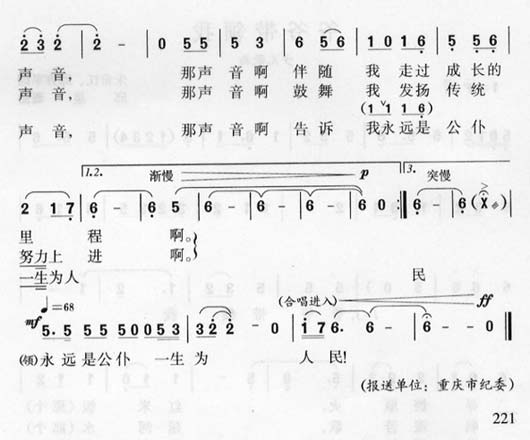 2̇ 3̇ 2̇ | 2̇ - 0 5 5 | 5 3 6 5 6 | 1 0 1 6 | 5 5 6 |
声 音， 那声 音啊 伴随 我 走过 成长的
声 音， 那声 音啊 鼓舞 我 发扬 传统
(1 1 1 6)
声 音， 那声 音啊 告诉 我永远是 公仆
1.2. 渐慢 p 3. 突慢
2 1 7 | 6 - 6 5 | 6 - 6 - | 6 - 6 0 :‖ 6 - 6 (X)
里 程 啊。
努力上 进 啊。
一生为人 民
♩=68 (合唱进入) ff
mf 5. 5 5 5 5 0 0 5 3 | 3 2 2 - 0 | 1 7 6. 6 - | 6 - 0 ‖
(领)永 远 是公仆 一生 为 人 民!
(报送单位：重庆市纪委)
221